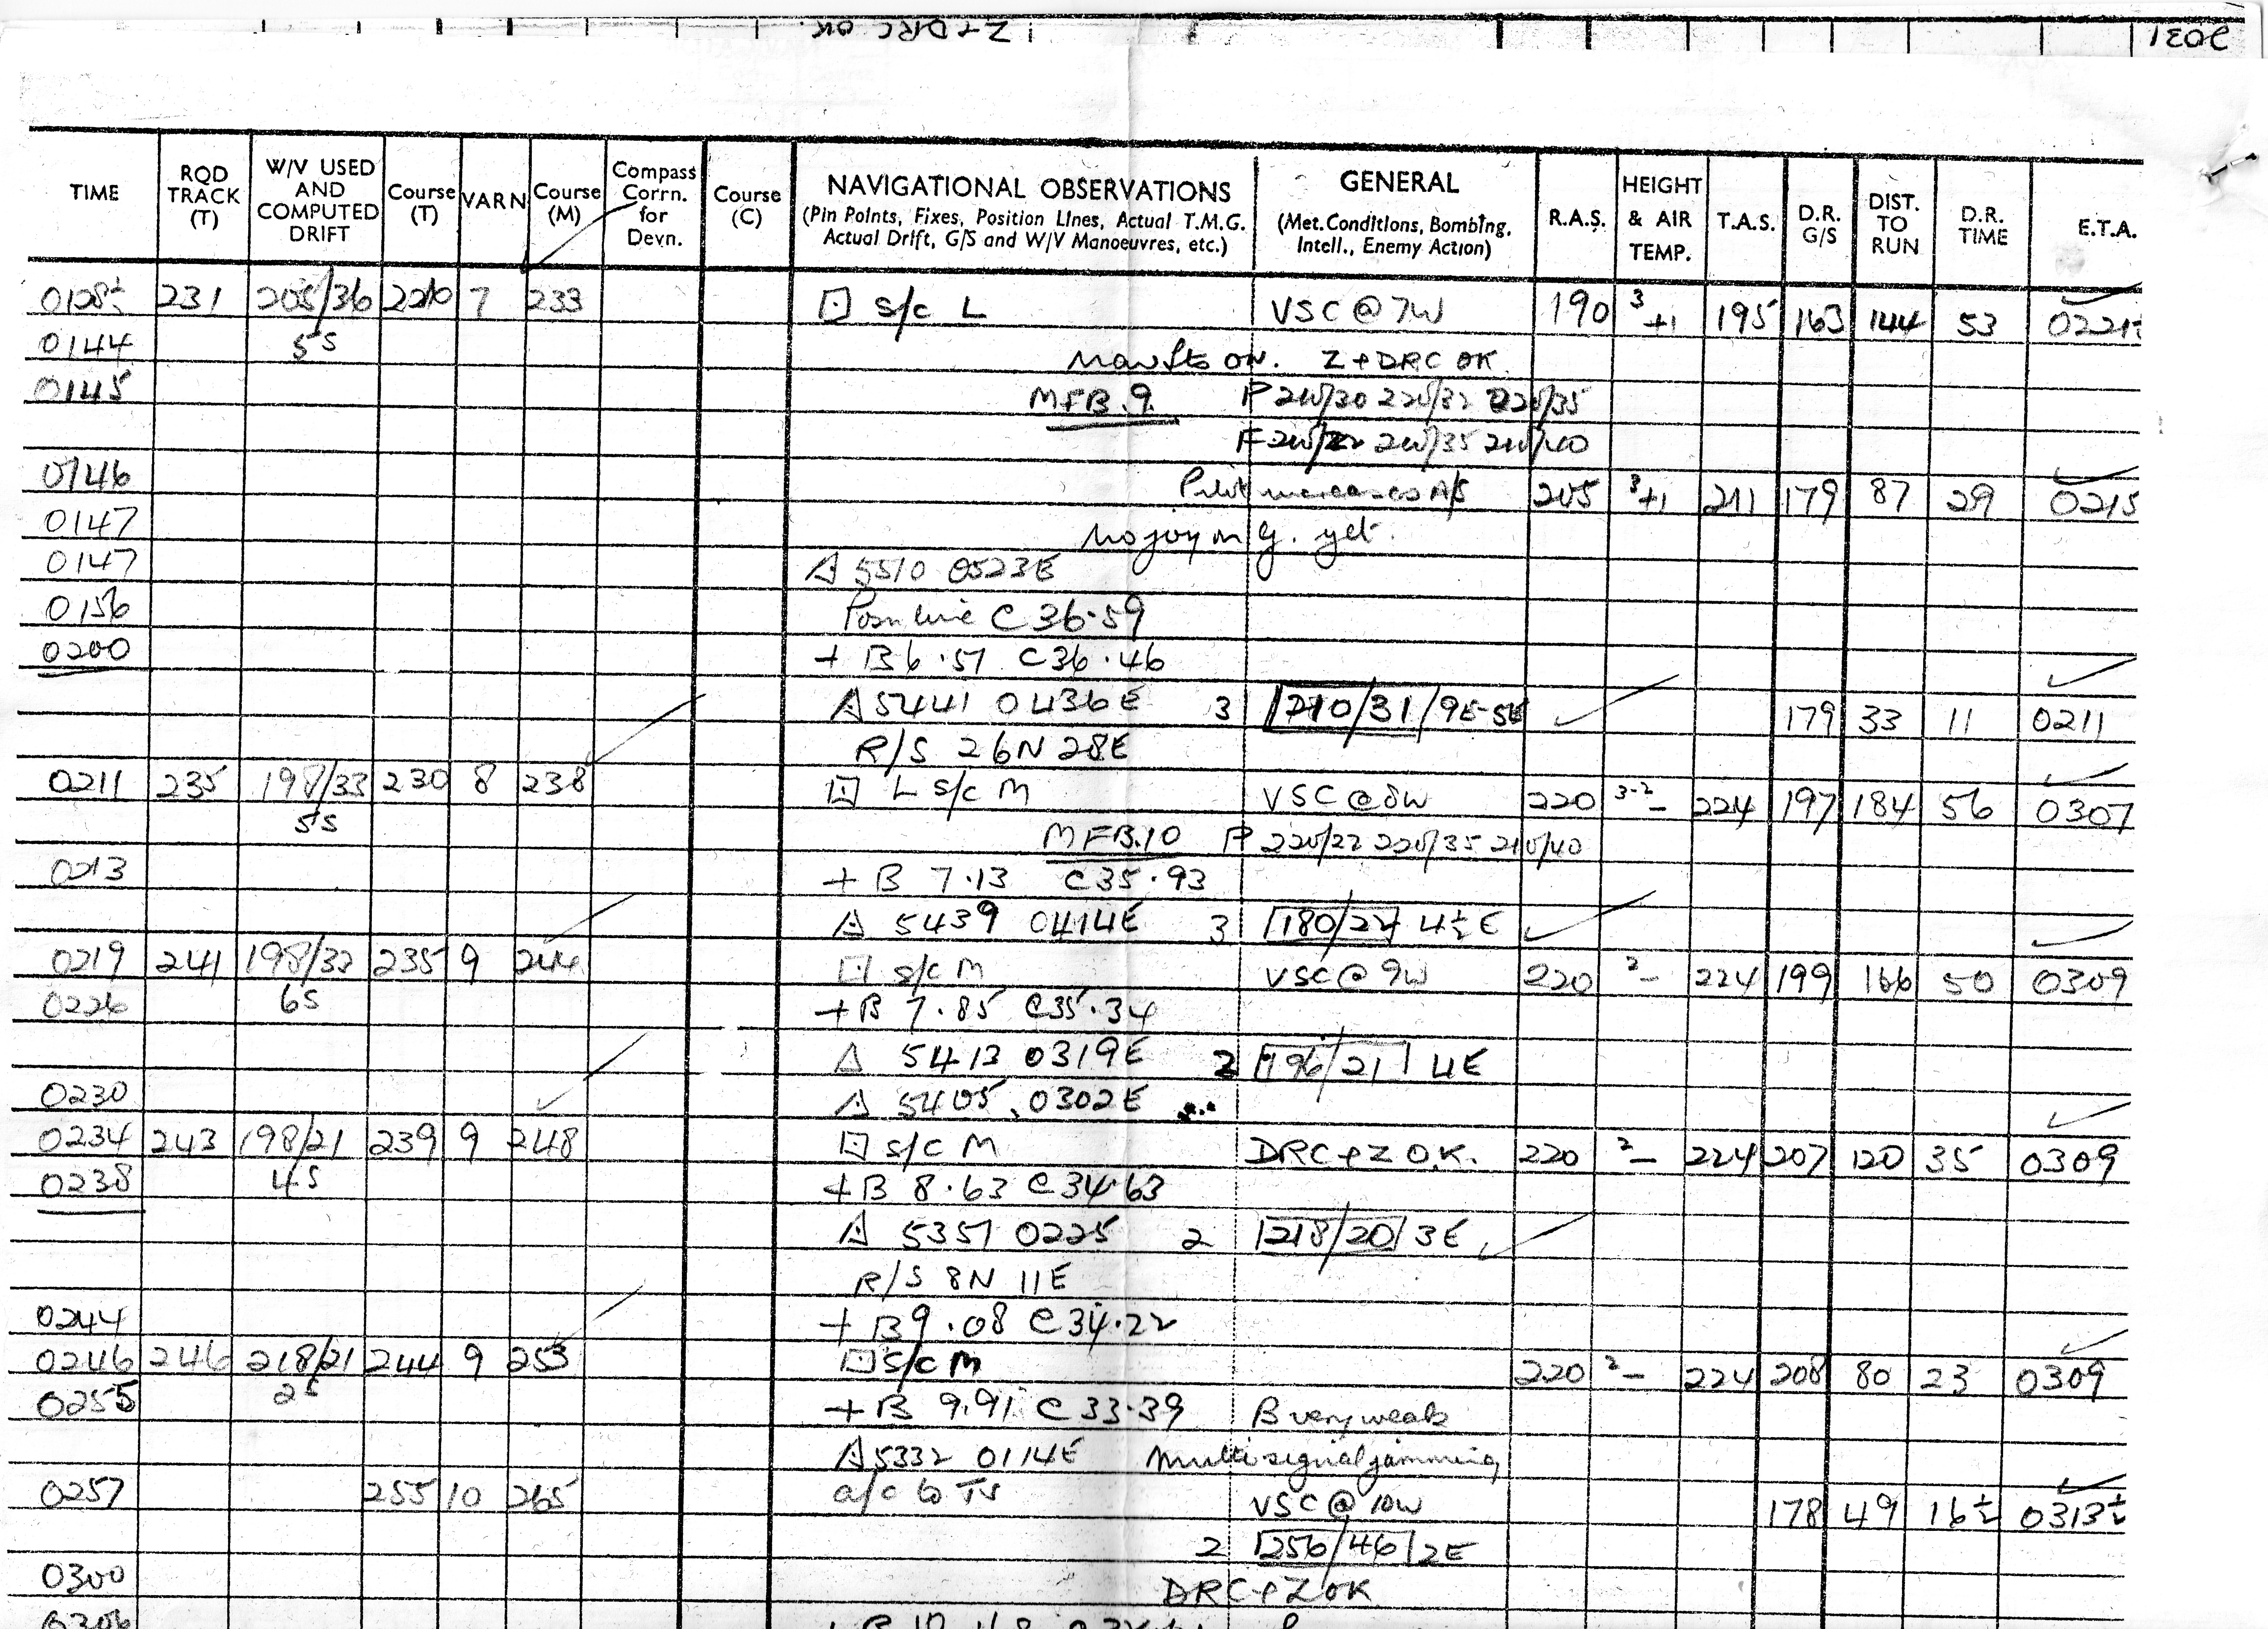 Z + DRC OK
2031
TIME RQD TRACK (T) W/V USED AND COMPUTED DRIFT Course (T) VARN Course (M) Compass Corrn. for Devn. Course (C) NAVIGATIONAL OBSERVATIONS (Pin Points, Fixes, Position Lines, Actual T.M.G. Actual Drift, G/S and W/V Manoeuvres, etc.) GENERAL (Met. Conditions, Bombing, Intell., Enemy Action) R.A.S. HEIGHT & AIR TEMP. T.A.S. D.R. G/S DIST. TO RUN D.R. TIME E.T.A.
0128½ 231 205/36 7 233 S/c L VSC @ 7W 190 3 +1 195 163 144 53 0221½
0144 5S
Z + DRC OK
0145 MFB.9. P 210/30 220/32 220/35
F 210/22 210/35 210/40
0146 Pilot increases A/S 205 3 +1 211 179 87 29 0215
0147 No joy on G. yet.
0147 5510 0523E
0156 Posn line C 36.59
0200 + B 6.57 C 36.46
5441 0436E 3 210/31 / 9E-5E 179 33 11 0211
R/S 26N 28E
0211 235 198/33 230 8 238 L S/c M VSC @ 8W 220 3-2 - 224 197 184 56 0307
5S
MFB.10 P 220/22 220/35 210/40
0213 + B 7.13 C 35.93
5439 0414E 3 180/27 4½E
0219 241 198/33 235 9 244 S/c M VSC @ 9W 220 2 - 224 199 166 50 0309
0226 6S + B 7.85 C 35.34
5413 0319E 2 196/21 4E
0230 5405 0302E
0234 243 198/21 239 9 248 S/c M DRC + Z O.K. 220 2 - 224 207 120 35 0309
0238 4S + B 8.63 C 34.63
5357 0225 2 218/20 3E
R/S 8N 11E
0244 + B 9.08 C 34.22
0246 246 218/21 244 9 253 S/c M 220 2 - 224 208 80 23 0309
0255 2S + B 9.91 C 33.39 B very weak
5332 0114E Multi signal jamming
0257 255 10 265 a/c to VSC @ 10W 178 49 16½ 0313½
2 256/46 2E
0300 DRC + Z OK
0306